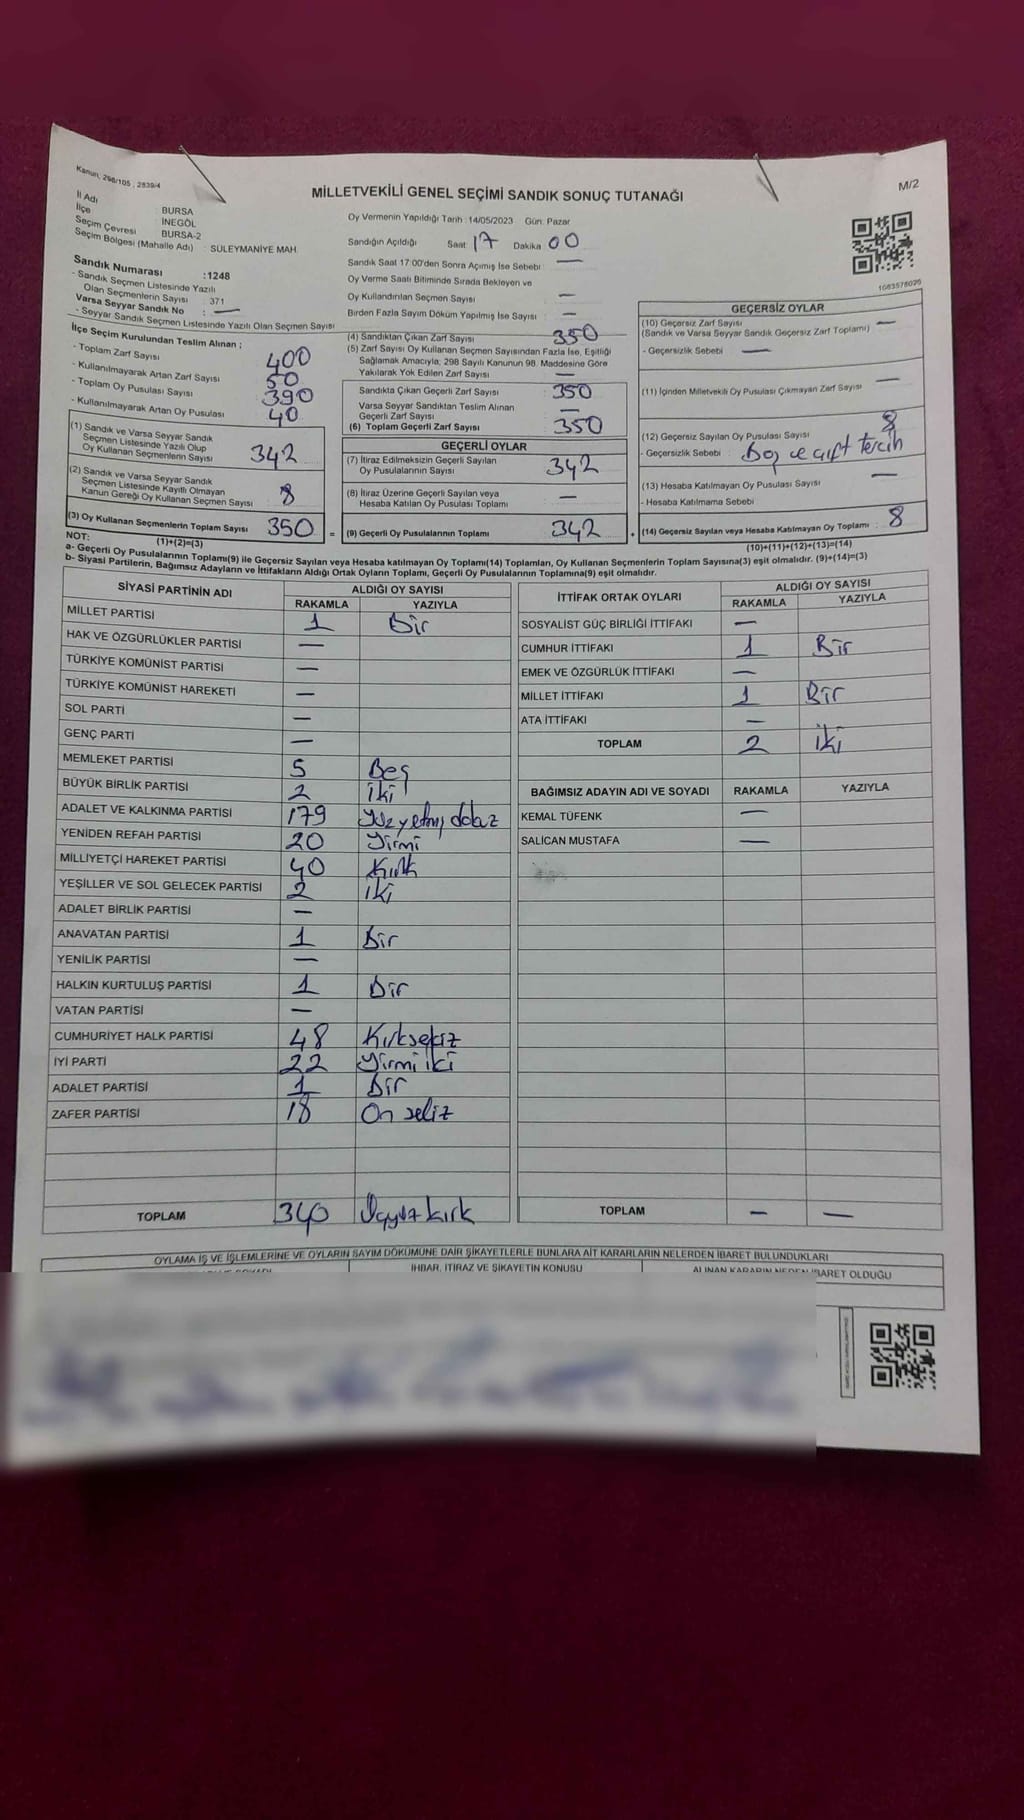 Kanun, 298/105 , 2839/4
M/2
MİLLETVEKİLİ GENEL SEÇİMİ SANDIK SONUÇ TUTANAĞI
İl Adı : BURSA
İlçe : İNEGÖL
Seçim Çevresi : BURSA-2
Seçim Bölgesi (Mahalle Adı) : SÜLEYMANİYE MAH.
Sandık Numarası :1248
- Sandık Seçmen Listesinde Yazılı
Olan Seçmenlerin Sayısı : 371
Varsa Seyyar Sandık No : —
- Seyyar Sandık Seçmen Listesinde Yazılı Olan Seçmen Sayısı
Oy Vermenin Yapıldığı Tarih : 14/05/2023 Gün: Pazar
Sandığın Açıldığı Saat 17 Dakika 00
Sandık Saat 17:00'den Sonra Açılmış İse Sebebi : —
Oy Verme Saati Bitiminde Sırada Bekleyen ve
Oy Kullandırılan Seçmen Sayısı : —
Birden Fazla Sayım Döküm Yapılmış İse Sayısı : —
1083578025
İlçe Seçim Kurulundan Teslim Alınan ;
- Toplam Zarf Sayısı : 400
- Kullanılmayarak Artan Zarf Sayısı : 50
- Toplam Oy Pusulası Sayısı : 390
- Kullanılmayarak Artan Oy Pusulası : 40
(1) Sandık ve Varsa Seyyar Sandık
Seçmen Listesinde Yazılı Olup
Oy Kullanan Seçmenlerin Sayısı : 342
(2) Sandık ve Varsa Seyyar Sandık
Seçmen Listesinde Kayıtlı Olmayan
Kanun Gereği Oy Kullanan Seçmen Sayısı : 8
(3) Oy Kullanan Seçmenlerin Toplam Sayısı : 350
(1)+(2)=(3)
(4) Sandıktan Çıkan Zarf Sayısı : 350
(5) Zarf Sayısı Oy Kullanan Seçmen Sayısından Fazla İse, Eşitliği
Sağlamak Amacıyla; 298 Sayılı Kanunun 98. Maddesine Göre
Yakılarak Yok Edilen Zarf Sayısı : —
Sandıkta Çıkan Geçerli Zarf Sayısı : 350
Varsa Seyyar Sandıktan Teslim Alınan
Geçerli Zarf Sayısı : —
(6) Toplam Geçerli Zarf Sayısı : 350
GEÇERLİ OYLAR
(7) İtiraz Edilmeksizin Geçerli Sayılan
Oy Pusulalarının Sayısı : 342
(8) İtiraz Üzerine Geçerli Sayılan veya
Hesaba Katılan Oy Pusulası Toplamı : —
= (9) Geçerli Oy Pusulalarının Toplamı : 342 +
GEÇERSİZ OYLAR
(10) Geçersiz Zarf Sayısı : —
(Sandık ve Varsa Seyyar Sandık Geçersiz Zarf Toplamı)
- Geçersizlik Sebebi : —
(11) İçinden Milletvekili Oy Pusulası Çıkmayan Zarf Sayısı : —
(12) Geçersiz Sayılan Oy Pusulası Sayısı : 8
Geçersizlik Sebebi : Boş ve çift tercih
(13) Hesaba Katılmayan Oy Pusulası Sayısı : —
- Hesaba Katılmama Sebebi
(14) Geçersiz Sayılan veya Hesaba Katılmayan Oy Toplamı : 8
(10)+(11)+(12)+(13)=(14)
NOT:
a- Geçerli Oy Pusulalarının Toplamı(9) ile Geçersiz Sayılan veya Hesaba katılmayan Oy Toplamı(14) Toplamları, Oy Kullanan Seçmenlerin Toplam Sayısına(3) eşit olmalıdır. (9)+(14)=(3)
b- Siyasi Partilerin, Bağımsız Adayların ve İttifakların Aldığı Ortak Oyların Toplamı, Geçerli Oy Pusulalarının Toplamına(9) eşit olmalıdır.
SİYASİ PARTİNİN ADI ALDIĞI OY SAYISI
RAKAMLA YAZIYLA
MİLLET PARTİSİ 1 Bir
HAK VE ÖZGÜRLÜKLER PARTİSİ —
TÜRKİYE KOMÜNİST PARTİSİ —
TÜRKİYE KOMÜNİST HAREKETİ —
SOL PARTİ —
GENÇ PARTİ —
MEMLEKET PARTİSİ 5 Beş
BÜYÜK BİRLİK PARTİSİ 2 iki
ADALET VE KALKINMA PARTİSİ 179 Yüzyetmişdokuz
YENİDEN REFAH PARTİSİ 20 Yirmi
MİLLİYETÇİ HAREKET PARTİSİ 40 Kırk
YEŞİLLER VE SOL GELECEK PARTİSİ 2 iki
ADALET BİRLİK PARTİSİ —
ANAVATAN PARTİSİ 1 Bir
YENİLİK PARTİSİ —
HALKIN KURTULUŞ PARTİSİ 1 Bir
VATAN PARTİSİ —
CUMHURİYET HALK PARTİSİ 48 Kırksekiz
İYİ PARTİ 22 Yirmi iki
ADALET PARTİSİ 1 Bir
ZAFER PARTİSİ 18 On sekiz
TOPLAM 340 Üçyüz kırk
İTTİFAK ORTAK OYLARI ALDIĞI OY SAYISI
RAKAMLA YAZIYLA
SOSYALİST GÜÇ BİRLİĞİ İTTİFAKI —
CUMHUR İTTİFAKI 1 Bir
EMEK VE ÖZGÜRLÜK İTTİFAKI —
MİLLET İTTİFAKI 1 Bir
ATA İTTİFAKI —
TOPLAM 2 iki
BAĞIMSIZ ADAYIN ADI VE SOYADI RAKAMLA YAZIYLA
KEMAL TÜFENK —
SALİCAN MUSTAFA —
TOPLAM — —
OYLAMA İŞ VE İŞLEMLERİNE VE OYLARIN SAYIM DÖKÜMÜNE DAİR ŞİKAYETLERLE BUNLARA AİT KARARLARIN NELERDEN İBARET BULUNDUKLARI
İHBAR, İTİRAZ VE ŞİKAYETİN KONUSU
ALINAN KARARIN NEDEN İBARET OLDUĞU